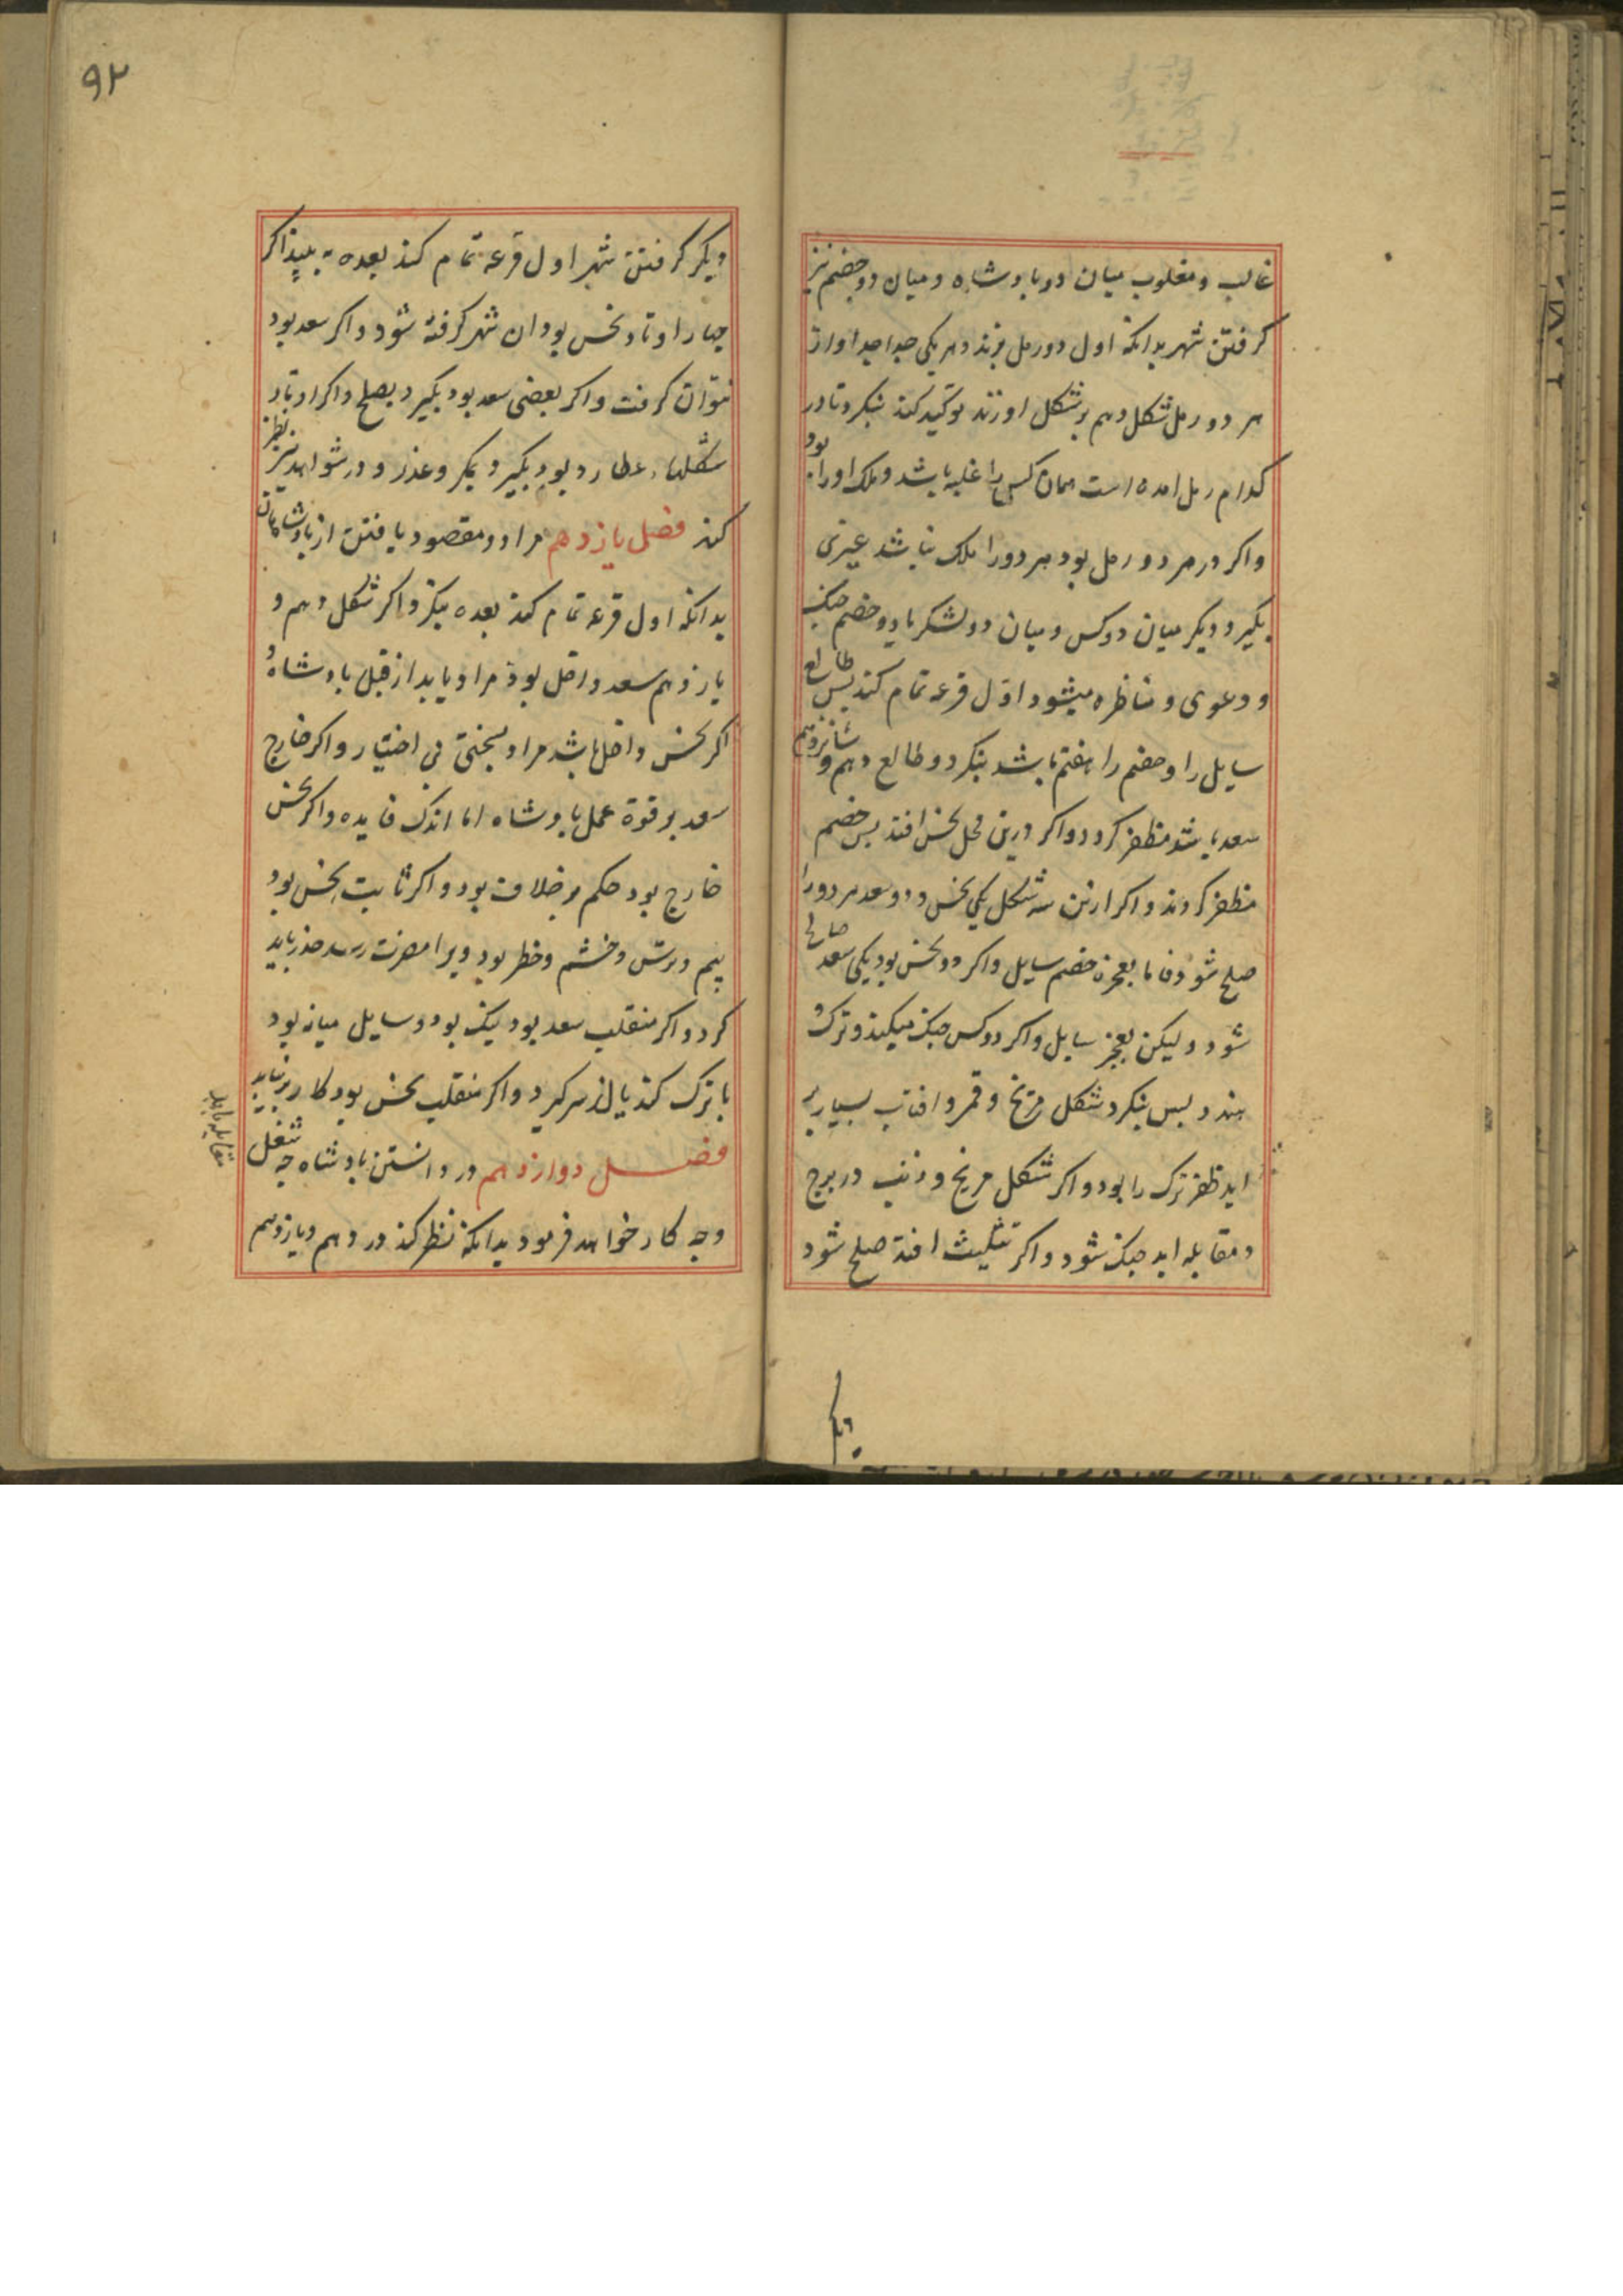 غالب و مغلوب میان دو بادشاه و میان دو خصم نیز
کرفتن شهر بدانکه اول دو رمل بزند و هر یکی جدا جدا و از
هر دو رمل شکل دهم بر شکل او زند تولید کند بنکرد تا در
کدام رمل امده است همان کس را غلبه باشد و ملک او را بود
و اکر در هر دو رمل بود هر دو را ملک نباشد غیری
بکیرد دیکر میان دو کس و میان دو لشکر یا دو خصم جنک
و دعوی و مناظره میشود اول قرعه تمام کند پس طالع
سایل را و خصم را هفتم باشد بنکرد و طالع دهم و شانزدهم
سعد باشد مظفر کردد و اکر درین محل نحس افتد پس خصم
مظفر کردند و اکر ازین سه شکل یکی نحس و دو سعد هر دو را
صلح شود فاما بعجزه خصم سایل و اکر دو نحس بود یکی سعد صالح
شود ولیکن بعجز سایل و اکر دو کس جنک میکنند و ترک و
هند و بس بنکرد شکل مریخ و قمر و افتاب بسیار بر
اید ظفر ترک را بود و اکر شکل مریخ و ذنب در برج
و مقابله اید جنک شود و اکر تثلیث افتد صلح شود
دیکر
۹۲
دیکر کرفتن شهر اول قرعه تمام کند بعده به بیند اکر
چهار اوتاد نحس بود ان شهر کرفته شود و اکر سعد بود
نتوان کرفت و اکر بعضی سعد بود بکیرد بصلح و اکر اوتاد
شکلهاء عطارد بود بکیرد بمکر و عذر و در شواهد نیز نظر
کند فصل یازدهم مراد و مقصود یافتن از بادشاهان
بدانکه اول قرعه تمام کند بعده بنکرد اکر شکل دهم و
یازدهم سعد داخل بود مراد یابد از قبل بادشاه و
اکر نحس داخل باشد مراد بسختی بی اختیار و اکر خارج
سعد بر قوة عمل بادشاه اما اندک فایده و اکر نحس
خارج بود حکم بر خلاف بود و اکر ثابت نحس بود
بیم و ترس و خشم و خطر بود ویرا مضرت رسد حذر باید
کرد و اکر منقلب سعد بود نیک بود و سایل میانه بود
با ترک کند یا از سر کیرد و اکر منقلب نحس بود کار بر نیاید
فصل دوازدهم در دانستن بادشاه چه شغل
و چه کار خواهد فرمود بدانکه نظر کند در دهم و یازدهم